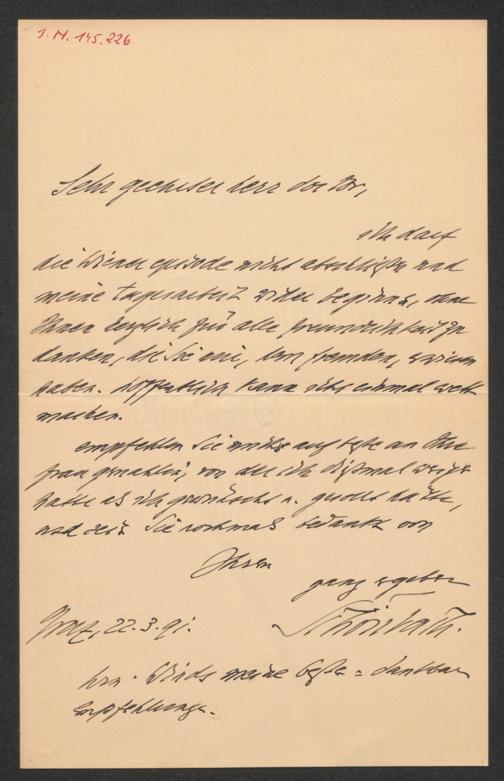 J. N. 145.226
Sehr geehrter herr doctor,
ich darf
die Wiener episode nicht abschließen und
meine tagesarbeit wider beginnen, ohne
Ihnen herzlich für alle freundlichkeit zu
danken, die Sie mir, dem fremden, erwiesen
haben. hoffentlich kann ichs einmal wett
machen.
empfehlen Sie mich aufs beste an Ihre
frau gemahlin, von der ich dißmal weniger
hatte als ich gewünscht u. gehofft hatte,
und seien Sie nochmals bedankt von
Ihrem
ganz ergebenen
Schönbach.
Graz, 22.3.91.
hrn. meine beste = dankbare
empfehlunge.